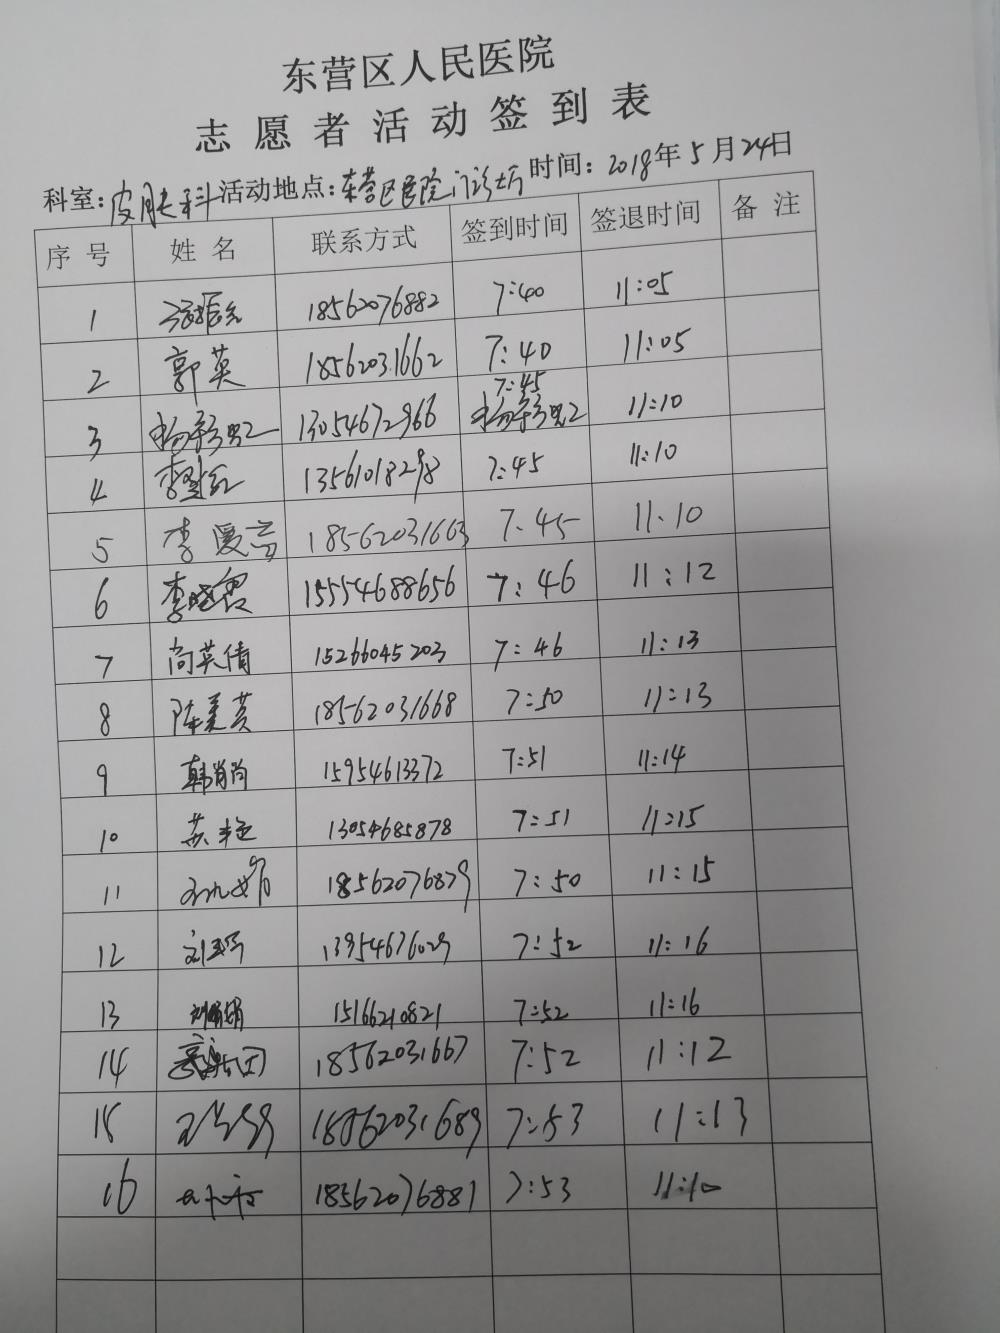 东营区人民医院
志愿者活动签到表
科室：皮肤科 活动地点：东营区医院门诊大厅 时间：2018年5月24日
序号 姓名 联系方式 签到时间 签退时间 备注
1 18562076882 7:40 11:05
2 郭英 18562031662 7:40 11:05
3 13054672966 7:45 11:10
4 13561018298 7:45 11:10
5 李爱 18562031663 7:45 11:10
6 李晓霞 15554688656 7:46 11:12
7 尚英倩 15266045203 7:46 11:13
8 陈美英 18562031668 7:50 11:13
9 韩肖肖 15954613372 7:51 11:14
10 苏艳 13054685878 7:51 11:15
11 18562076879 7:50 11:15
12 13954676029 7:52 11:16
13 15166210821 7:52 11:16
14 18562031667 7:52 11:12
15 18562031689 7:53 11:13
16 18562076881 7:53 11:10